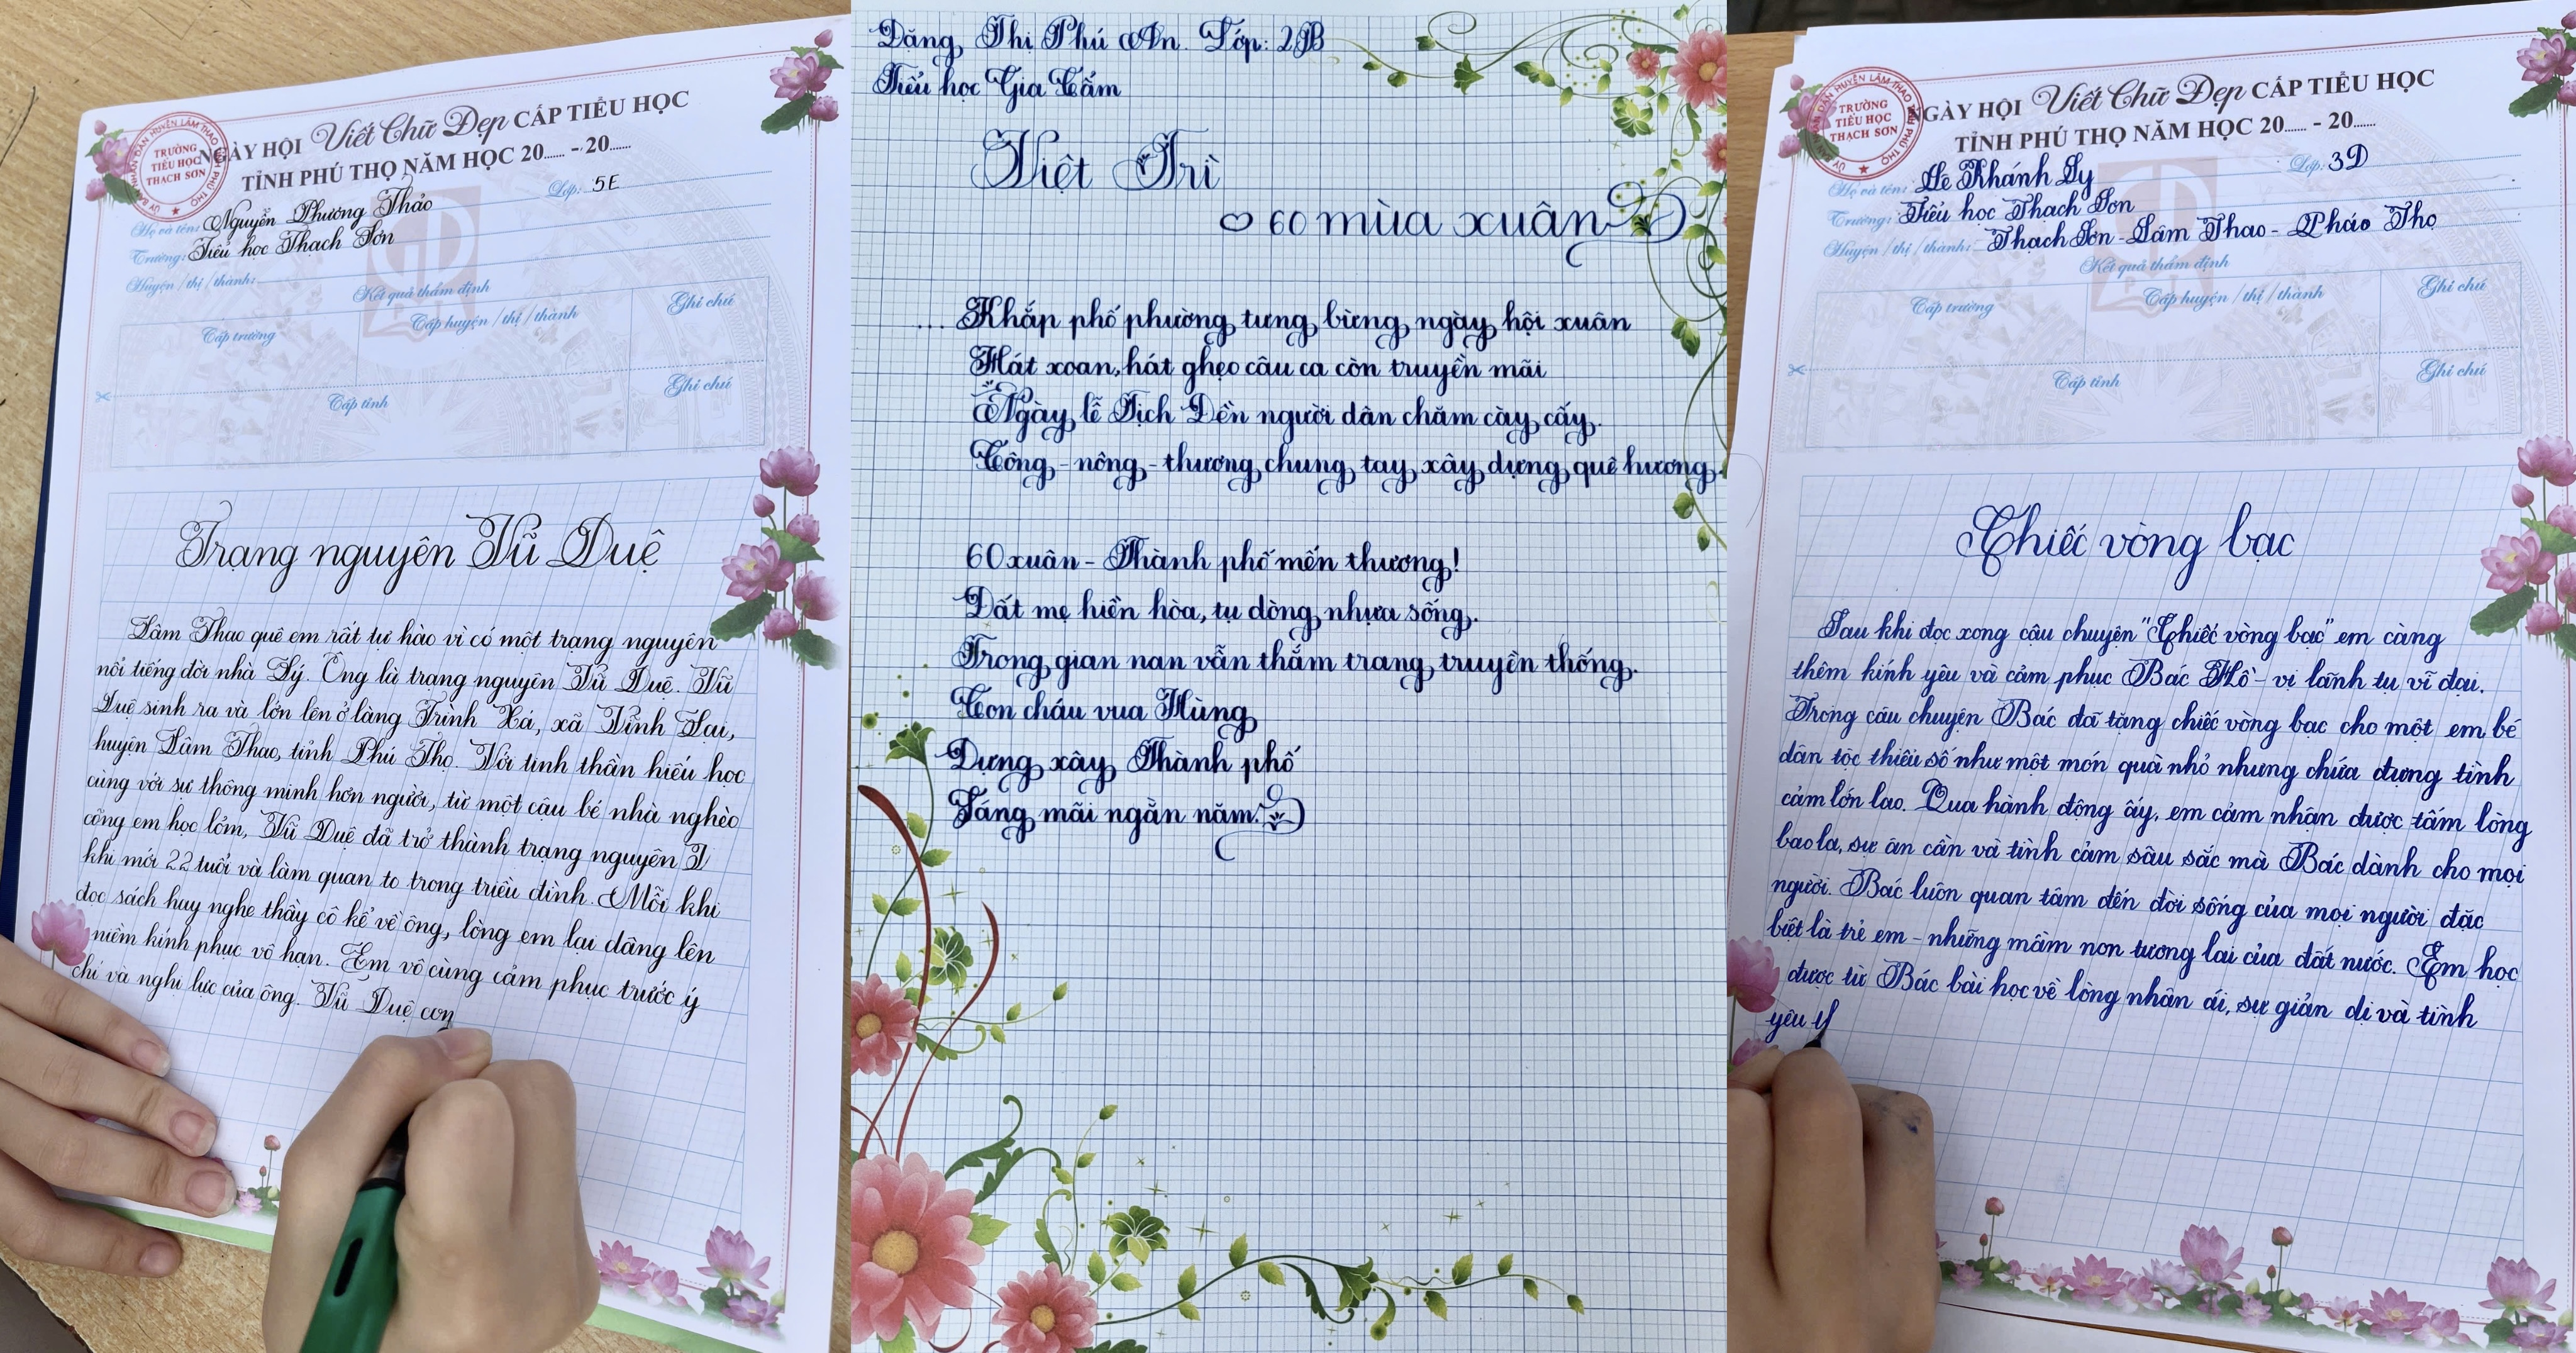 NGÀY HỘI Viết Chữ Đẹp CẤP TIỂU HỌC
TỈNH PHÚ THỌ NĂM HỌC 20...... - 20......
ỦY BAN NHÂN DÂN HUYỆN LÂM THAO TỈNH PHÚ THỌ
TRƯỜNG
TIỂU HỌC
THẠCH SƠN
Họ và tên: Nguyễn Phương Thảo Lớp: 5E
Trường: Tiểu học Thạch Sơn
Huyện/thị/thành:
Kết quả thẩm định
Cấp trường Cấp huyện/thị/thành Ghi chú
Cấp tỉnh Ghi chú
Trạng nguyên Vũ Duệ
Lâm Thao quê em rất tự hào vì có một trạng nguyên
nổi tiếng đời nhà Lý. Ông là trạng nguyên Vũ Duệ. Vũ
Duệ sinh ra và lớn lên ở làng Trình Xá, xã Vĩnh Lại,
huyện Lâm Thao, tỉnh Phú Thọ. Với tinh thần hiếu học
cùng với sự thông minh hơn người, từ một cậu bé nhà nghèo
cõng em học lỏm, Vũ Duệ đã trở thành trạng nguyên
khi mới 22 tuổi và làm quan to trong triều đình. Mỗi khi
đọc sách huy nghe thầy cô kể về ông, lòng em lại dâng lên
niềm kính phục vô hạn. Em vô cùng cảm phục trước ý
chí và nghị lực của ông. Vũ Duệ con
Đặng Thị Phú An. Lớp: 2B
Tiểu học Gia Cẩm
Việt Trì
60 mùa xuân
... Khắp phố phường tưng bừng ngày hội xuân
Hát xoan, hát ghẹo câu ca còn truyền mãi
Ngày lễ Tịch Đền người dân chăm cày cấy.
Công - nông - thương chung tay xây dựng quê hương.
60 xuân - Thành phố mến thương!
Đất mẹ hiền hòa, tụ dòng nhựa sống.
Trong gian nan vẫn thắm trang truyền thống.
Con cháu vua Hùng
Dựng xây Thành phố
Sáng mãi ngàn năm.
NGÀY HỘI Viết Chữ Đẹp CẤP TIỂU HỌC
TỈNH PHÚ THỌ NĂM HỌC 20...... - 20......
ỦY BAN NHÂN DÂN HUYỆN LÂM THAO TỈNH PHÚ THỌ
TRƯỜNG
TIỂU HỌC
THẠCH SƠN
Họ và tên: Lê Khánh Ly Lớp: 3D
Trường: Tiểu học Thạch Sơn
Huyện/thị/thành: Thạch Sơn - Lâm Thao - Pháo Thọ
Kết quả thẩm định
Cấp trường Cấp huyện/thị/thành Ghi chú
Cấp tỉnh Ghi chú
Chiếc vòng bạc
Sau khi đọc xong câu chuyện "Chiếc vòng bạc" em càng
thêm kính yêu và cảm phục Bác Hồ - vị lãnh tụ vĩ đại.
Trong câu chuyện Bác đã tặng chiếc vòng bạc cho một em bé
dân tộc thiểu số như một món quà nhỏ nhưng chứa đựng tình
cảm lớn lao. Qua hành động ấy, em cảm nhận được tấm lòng
bao la, sự ân cần và tình cảm sâu sắc mà Bác dành cho mọi
người. Bác luôn quan tâm đến đời sống của mọi người đặc
biệt là trẻ em - những mầm non tương lai của đất nước. Em học
được từ Bác bài học về lòng nhân ái, sự giản dị và tình
yêu